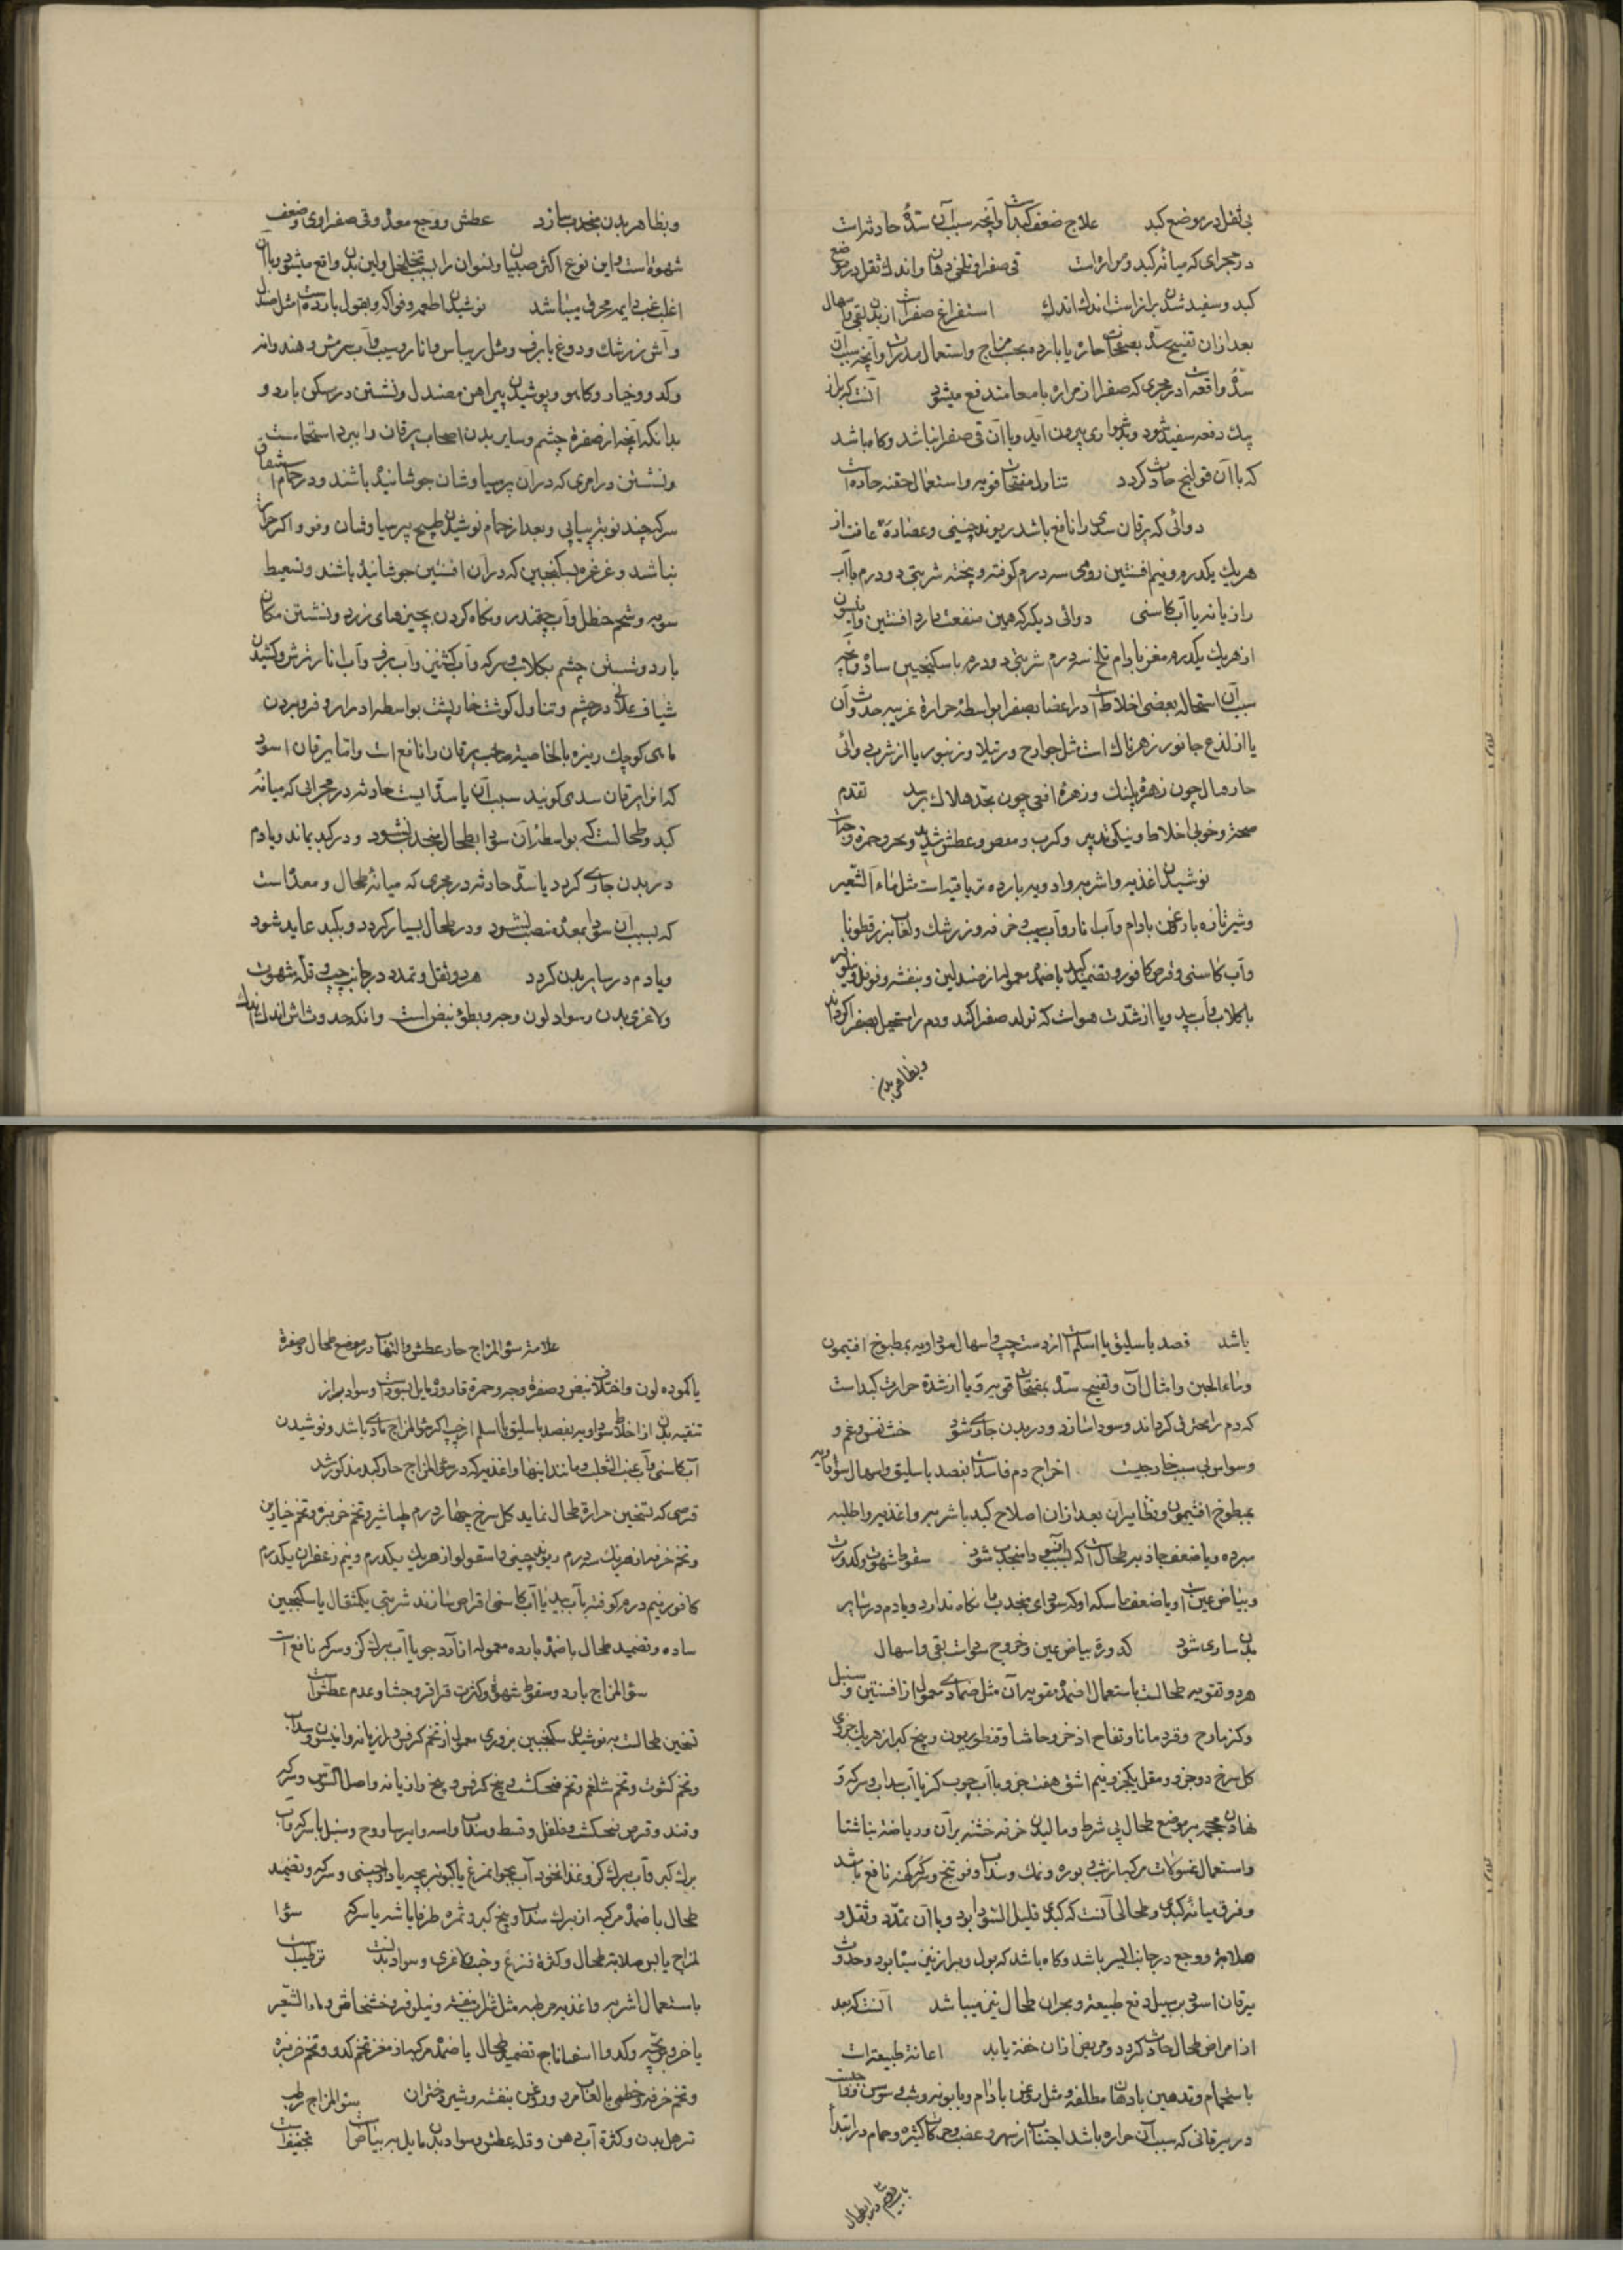 بی ثقل در موضع کبد علاج ضعف کبد است وآنچه سبب آن سدهٔ حادثه است
در مجرای که میانهٔ کبد ومراره است قی صفرا وتلخی دهان واندک ثقل در موضع
کبد وسفید شدن براز است اندک اندک استفراغ صفراست از بدن بقی واسهال
بعد از آن تفتیح سده بمفتحات حاره یا بارده بحسب مزاج واستعمال مدرات وآنچه سبب آن
سدهٔ واقعه است در مجری که صفرا از مراره بامعا مندفع میشود آنست که براز
بیک دفعه سفید شود وبدشواری بیرون آید وبا آن قی صفرا نباشد وگاه باشد
که با آن قولنج حادث گردد تناول مفتحات قویه واستعمال حقنه حاده است
دوائی که یرقان سدی را نافع باشد ریوند چینی وعصارهٔ غافث از
هریک یکدرم ونیم افسنتین رومی سه درم کوفته وپخته شربتی دو درم با آب
رازیانه یا آب کاسنی دوائی دیگر که همین منفعت دارد افسنتین وانیسون
از هریک یکدرم مغز بادام تلخ سه درم شربتی دو درم با سکنجبین ساده وآنچه
سبب آن استحاله بعضی اخلاط است در اعضا بصفرا بواسطهٔ حرارة غریبه حدوث آن
یا از لذع جانور زهرناک است مثل جراره ورتیلا وزنبور یا از شرب دوائی
حار قتال چون زهرهٔ پلنگ وزهرهٔ افعی چون بحد هلاک نرسد تقدم
صحة وخوبی اخلاط ونیکی تدبیر وکرب ومغص وعطش شدید
نوشیدن اغذیه واشربه وادویه بارده تریاقیه است مثل ماء الشعیر
وشیر تازه با روغن بادام وآب انار وآب سیب وخرفه وزرشک ولعاب بزرقطونا
وآب کاسنی وقرص کافور وتضمید کبد باضمدهٔ معموله از صندلین وبنفشه وفوفل ونیلوفر
با گلاب وآب بید ویا از شدت هواست که تولد صفرا کند ودم را مستحیل بصفرا گرداند
وبظاهر بدن
وبظاهر بدن منجذب سازد عطش ووجع معده وقی صفراوی وضعف
شهوة است واین نوع اکثر صبیان ونسوان را بسبب تخلخل ولین بدن واقع میشود وبا آن
اغلب غب دایمه محرقه میباشد نوشیدن اطعمه وفواکه وبقول بارده است مثل صندل
وآش زرشک ودوغ با برف ومثل ریباس وانار وسیب وآب ترش وهندوانه
وکدو وخیار وکاهو وپوشیدن پیراهن مصندل ونشستن در مسکن بارد و
بدانکه آنچه از صفرة چشم وسایر بدن اصحاب یرقان را ببرد استحمامست
ونشستن در آبزنی که در آن پرسیاوشان جوشانیده باشند ودر حمام استنشاق
سرکه چند نوبت پیاپی وبعد از حمام نوشیدن طبیخ پرسیاوشان وفوه اگر حرارت
نباشد وغرغره بسکنجبین که در آن افسنتین جوشانیده باشند وتسعیط
وشحم حنظل وآب چقندر ونگاه کردن بچیزهای زرد ونشستن مکان
بارد وشستن چشم بگلاب وسرکه وآب کشنیز وآب برف وآب انار ترش وکشیدن
شیاف در چشم وتناول گوشت خارپشت بواسطه ادرار او وفرو بردن
ماهی کوچک ریزه بالخاصیة صاحب یرقان را نافع است واما یرقان اسود
که آنرا یرقان سدی گویند سبب آن یا سده ایست حادثه در مجرایی که میانهٔ
کبد وطحالست که بواسطه آن سودا بطحال منجذب نشود ودر کبد بماند وبا دم
در بدن جاری گردد یا سدهٔ حادثه در مجری که میانهٔ طحال ومعده است
که بسبب آن سودا بمعده منصب نشود ودر طحال بسیار گردد وبکبد عاید شود
وبا دم در سایر بدن گردد هر دو ثقل وتمدد در جانب چپ وقلة شهوت
ولاغری بدن وسواد لون وجه وبطؤ نبض است وآنکه حدوثش اندک اندک
باشد فصد باسلیق یا اسیلم است از دست چپ واسهال سوداویه بمطبوخ افتیمون
وماء الجبن وامثال آن وتفتیح سده بمفتحات قویه ویا از شدة حرارت کبد است
که دم را محترق گرداند وسودا سازد ودر بدن جاری شود خبث نفس وغم و
وسواس بی سبب خارجیست اخراج دم فاسد است بفصد باسلیق واسهال سوداویه
بمطبوخ افتیمون ونظایر آن بعد از آن اصلاح کبد باشربه واغذیه واطلیه
مبرده ویا ضعف جاذبه طحال است که بسبب آن سودا منجذب نشود سقوط شهوت وکدورت
وبیاض عین است ویا ضعف ماسکه او که سودای منجذب را نگاه ندارد وبا دم در سایر
بدن ساری شود کدورة بیاض عین وخروج سوداست بقی واسهال
هر دو تقویه طحالست باستعمال اضمدهٔ مقویه آن مثل ضمادی معمول از افسنتین وسنبل
وکزمازج وقردمانا وفقاح اذخر وحاشا وقنطوریون وبیخ کبر از هریک جزوی
گل سرخ دو جزو ومقل یکجزو ونیم اشق هفت جزو با آب چوب گز یا آب سداب وسرکه و
نهادن محجمه بر موضع طحال بی شرط ومالیدن خرقه خشنه بر آن وریاضة بناشتا
واستعمال غسولات مرکبه از شب وبوره ونمک وسداب وفوتنج وسرکه کهنه نافع باشد
وفرق میانهٔ کبدی وطحالی آنست که کبدی قلیل السواد بود وبا آن تمدد وثقل و
صلابة ووجع در جانب ایسر باشد وگاه باشد که بول وبراز نیز سیاه بود وحدوث
یرقان اسود بر سبیل دفع طبیعة وبحران طحال نیز میباشد آنست که بعد
از امراض طحال حادث گردد ومریض از آن خفة یابد اعانة طبیعة است
باستحمام وتدهین بادهان ملطفه مثل روغن بادام وبابونه وشبت وسوسن
در یرقانی که سبب آن حراره باشد اجتناب از سهر وغضب وحرکات کثیره وحمام در ابتدا
باب دوم در طحال
علامة سؤ المزاج حار عطش والتهاب در موضع طحال وصفرة
یا کمودة لون واختلاف نبض وصفرة وجه وحمرة قاروره مایل بسواد است وسواد براز
تنقیه بدن از اخلاط سوداویه بفصد باسلیق یا اسیلم از چپ اگر سؤ المزاج مادی باشد ونوشیدن
آب کاسنی وآب عنب الثعلب ومانند اینها واغذیه که در سؤ المزاج حار کبد مذکور شد
قرصی که تسخین حرارة طحال نماید گل سرخ چهار درم طباشیر وتخم خرفه وتخم خیارین
وتخم خربزه از هریک سه درم ریوند چینی واسقولو از هریک یکدرم ونیم زعفران یکدرم
کافور نیم درم کوفته بآب بید یا آب کاسنی اقراص سازند شربتی یکمثقال با سکنجبین
ساده وتضمید طحال باضمدهٔ بارده معموله از آرد جو با آب برگ گز وسرکه نافع است
سؤ المزاج بارد وسقوط شهوة وکثرت قراقر وجشا وعدم عطش است
تسخین طحالست به نوشیدن سکنجبین بزوری معمول از تخم کرفس ورازیانه وانیسون وسداب
وتخم کشوث وتخم شلغم وتخم فنجنکشت وبیخ کرفس وبیخ رازیانه واصل السوس وسرکه
وقند وقرص فنجنکشت وفلفل وقسط وسداب واسه وایرسا ووج وسنبل با سرکه وآب
برگ کبر وآب برگ گز وغذا نخود آب بجوانه مرغ یا کبوتر بچه با دارچینی وسرکه وتضمید
طحال باضمدهٔ مرکبه از برگ سداب وبیخ کبر وثمره طرفا باشه با سرکه سؤ ا
لمزاج یابس صلابة طحال وکثرة فزع وخبث ولاغری وسواد بدنست ترطیب است
باستعمال اشربه واغذیه مرطبه مثل شراب بنفشه ونیلوفر وخشخاش وماء الشعیر
یا خروس بچه وکدو یا اسفاناج تضمید طحال باضمدهٔ مرکبه از مغز تخم کدو وتخم خربزه
وتخم خرفه وخطمی با لعاب مرو وروغن بنفشه وشیر دختران سؤ المزاج رطب
ترهل بدن وکثرة آب دهن وقلة عطش وسواد بدن مایل به بیاض است تجفیف است